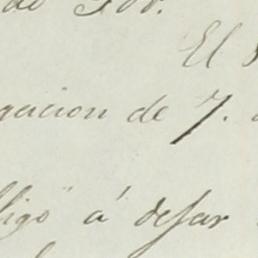 de Gov.
El
gacion de 7.
lligo" á desar